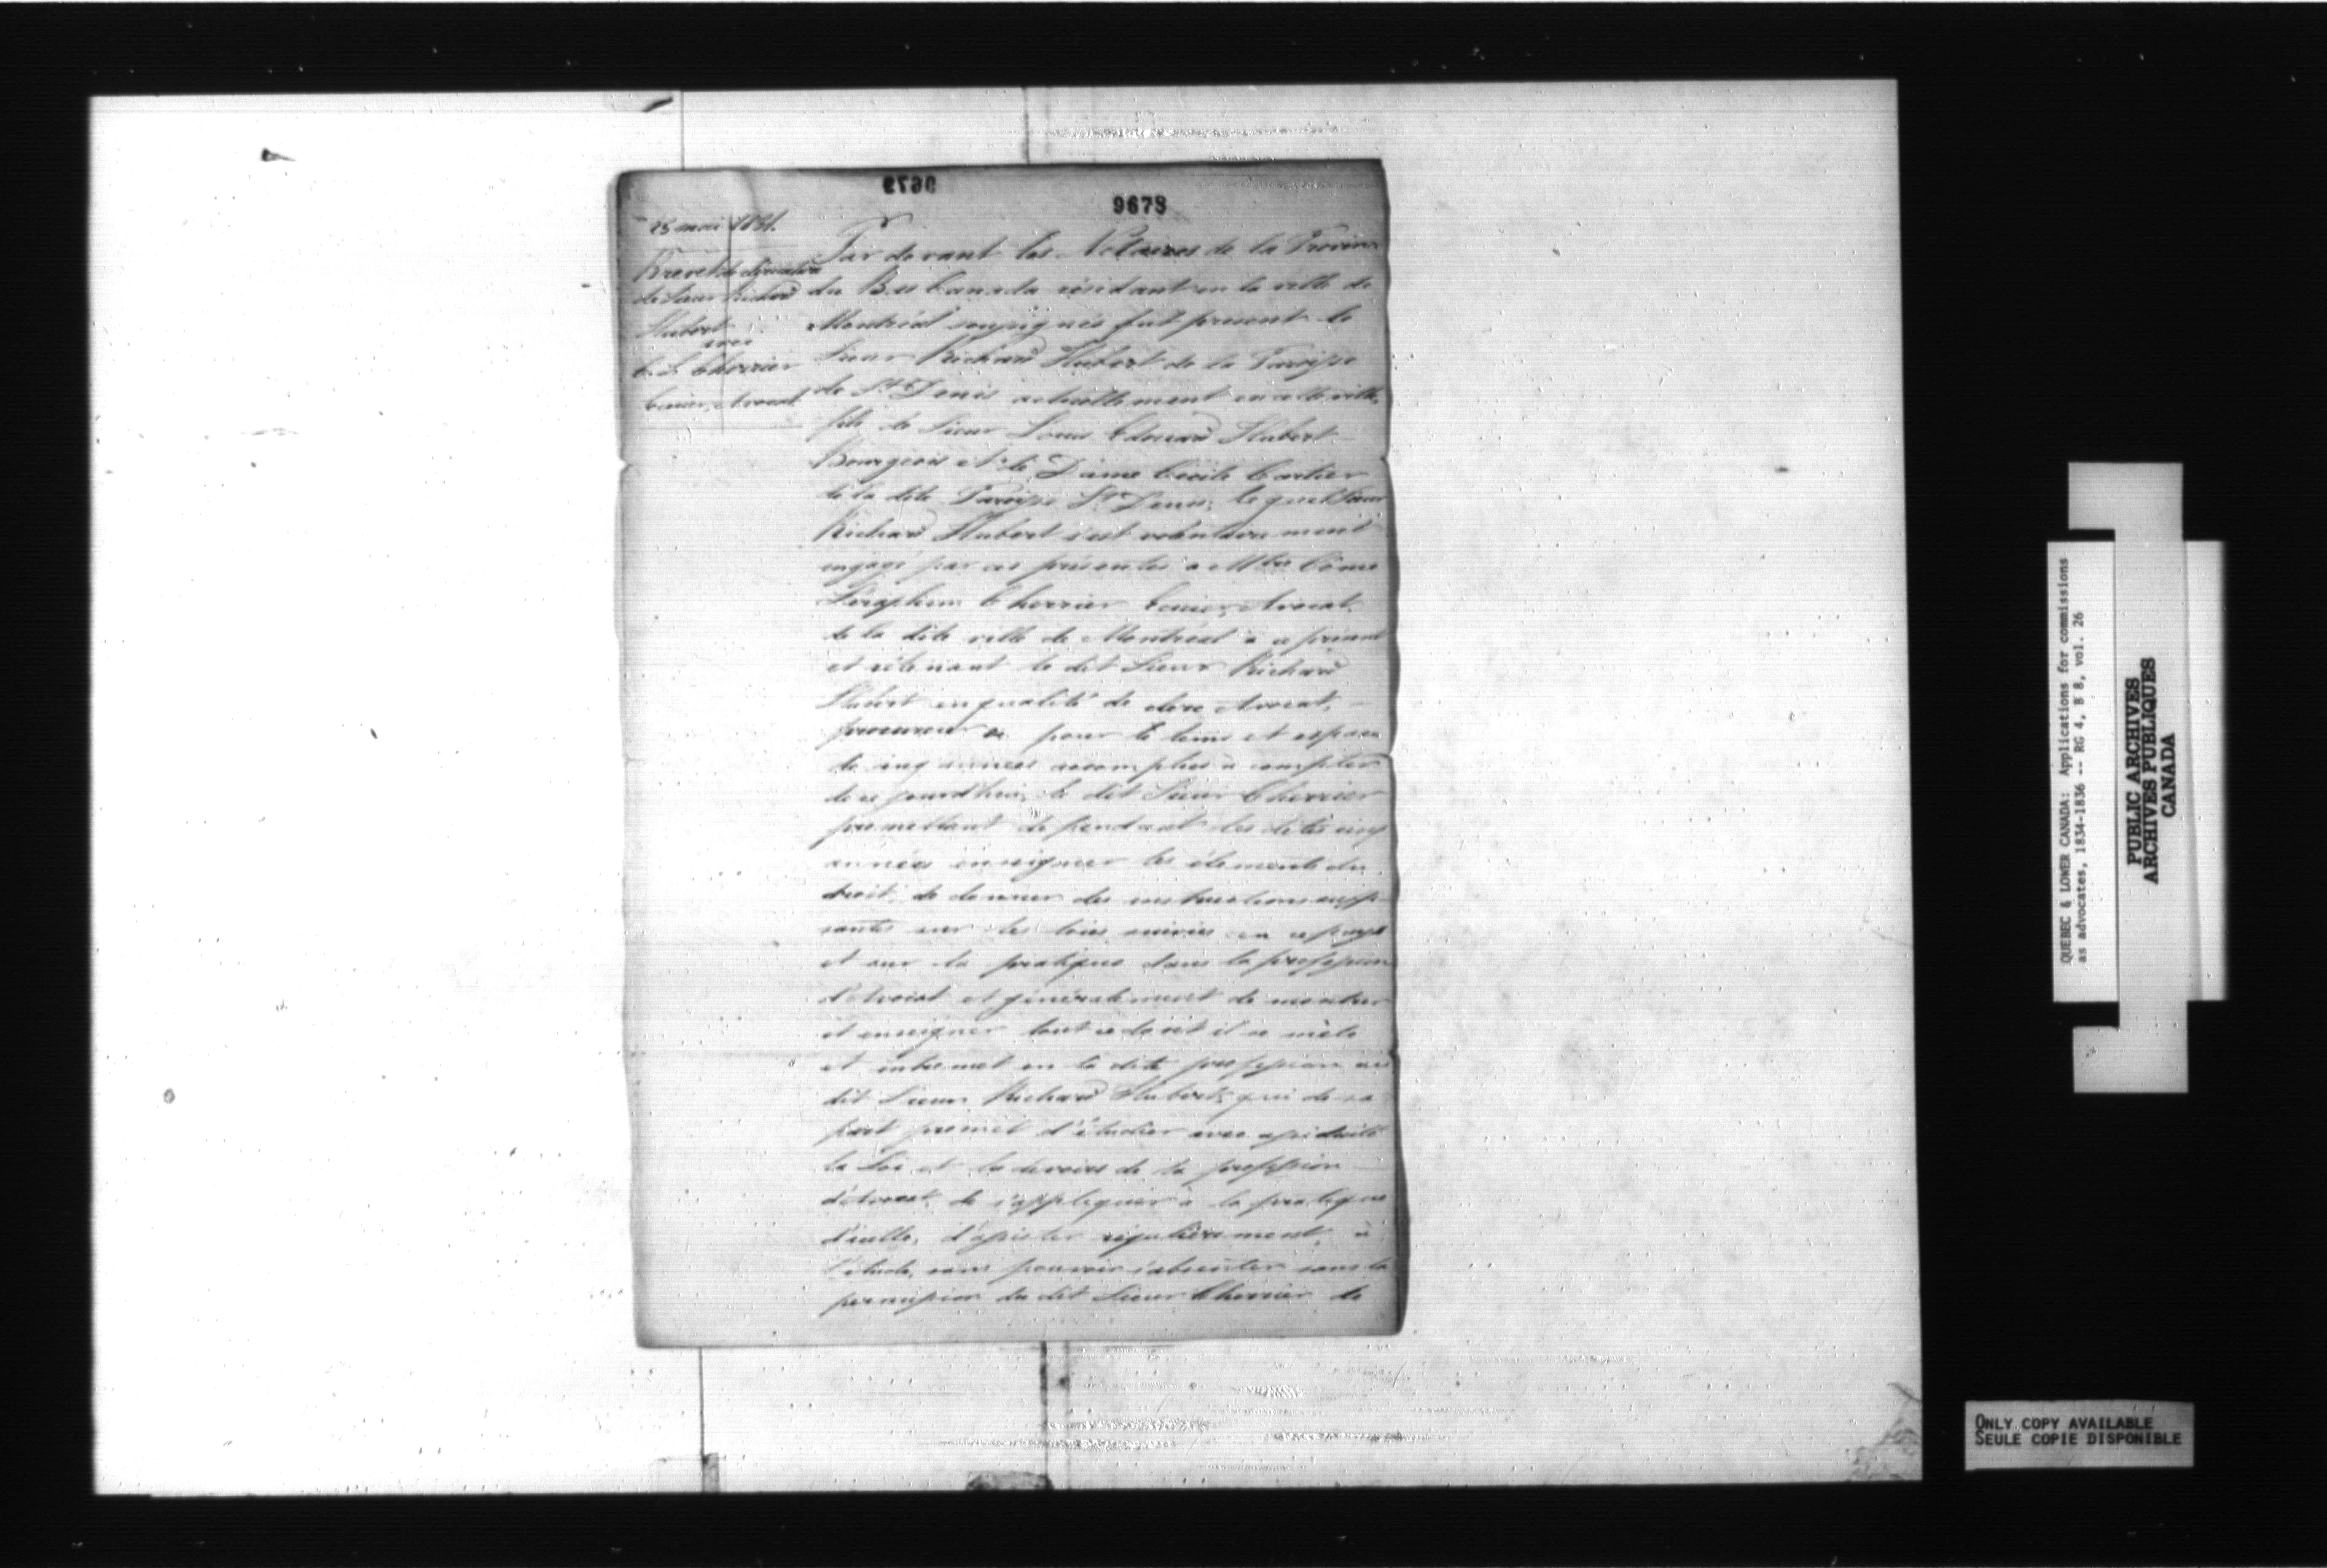 9673
25 mai 1831.
Brevet de cléricature
de Sieur Richard
Hubert
avec
C. S. Cherrier
Ecuier, Avocat
Par devant les Notaires de la Province
du Bas Canada résidant en la ville de
Montréal soussignés fut présent le
Sieur Richard Hubert de la Paroisse
de St Denis actuellement en cette ville,
fils de Sieur Louis Edouard Hubert
Bourgeois et de Dame Cécile Cartier
de la dite Paroisse St Denis; lequel Sieur
Richard Hubert s'est volontairement
engagé par ces présentes a Mtre Côme
Séraphin Cherrier Ecuier, Avocat,
de la dite ville de Montréal à ce présent
et retenant le dit Sieur Richard
Hubert en qualité de clerc Avocat,
procureur &c pour le tems et espace
de cinq années accomplies à compter
de ce jourd'hui, le dit Sieur Cherrier
promettant de pendant les dites cinq
années enseigner les élements du
droit, de donner des instructions suffi-
santes sur les lois suivies en ce pays
et sur la pratique dans la profession
d'Avocat et généralement de montrer
et enseigner tout ce dont il se mêle
et entremet en la dite profession au
dit Sieur Richard Hubert, qui de sa
part promet d'étudier avec assiduité
la Loi et les devoirs de la profession
d'Avocat, de s'appliquer à la pratique
d'icelle, d'assister régulièrement à
l'étude, sans pouvoir s'absenter sans la
permission du dit Sieur Cherrier de
QUEBEC & LOWER CANADA: Applications for commissions
as advocates, 1834-1836 -- RG 4, B 8, vol. 26
PUBLIC ARCHIVES
ARCHIVES PUBLIQUES
CANADA
ONLY COPY AVAILABLE
SEULE COPIE DISPONIBLE